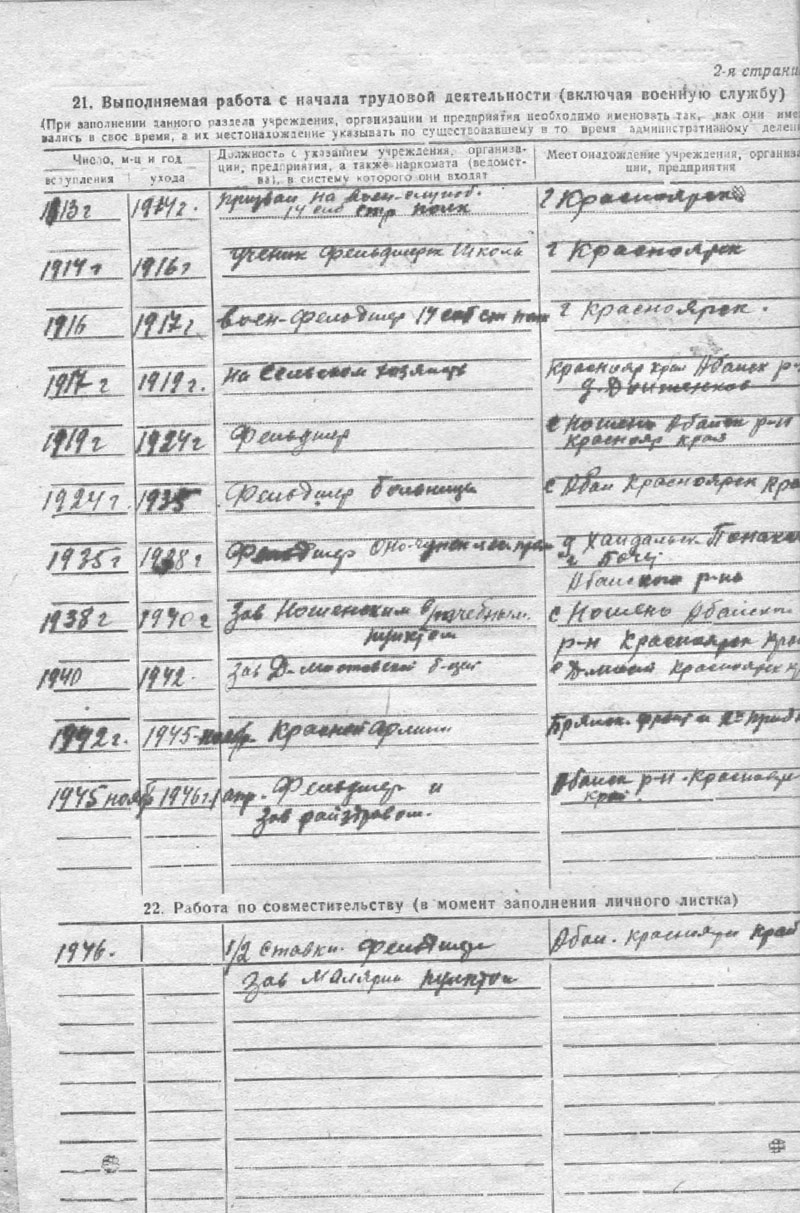 2-я страни
21. Выполняемая работа с начала трудовой деятельности (включая военную службу)
(При заполнении данного раздела учреждения, организации и предприятия необходимо именовать так, как они име
вались в свое время, а их местонахождение указывать по существовавшему в то время административному делен
Число, м-ц и год
вступления ухода
Должность с указанием учреждения, организа-
ции, предприятия, а также наркомата (ведомст-
ва), в систему которого они входят
Местонахождение учреждения, организа
ции, предприятия
1913 г 1914 г. призван на воен-служб. г Красноярск
14 сиб стр полк
1914 г 1916 г ученик фельдшерск школь г Красноярск
1916 1917 г. воен-фельдшер 14 сиб ст пол г Красноярск.
1917 г 1919 г. на сельском хозяйств Краснояр края Абанск р-
1919 г 1924 г фельдшер с Ношено Абанск р-н
Краснояр края
1924 г. 1935 Фельдшер больницы с Абан Красноярск кра
1935 г 1938 г Фельдшер д Хандальск
Абанского р-на
1938 г 1940 г Зав Ношенским врачебным с Ношено Абанск
пунктом р-н Красноярск кра
1940 1942. зав Д-мостовской б-цей Красноярск к
1942 г. 1945-ноябр. Красной Армии Брянск. фронт и 2й приб
1945 нояб 1946 г апр. Фельдшер и Абанск р-н Краснояр
зав райздравом. край.
22. Работа по совместительству (в момент заполнения личного листка)
1946. 1/2 ставки фельдшер Абан. Краснояр край
зав Малярин пунктом